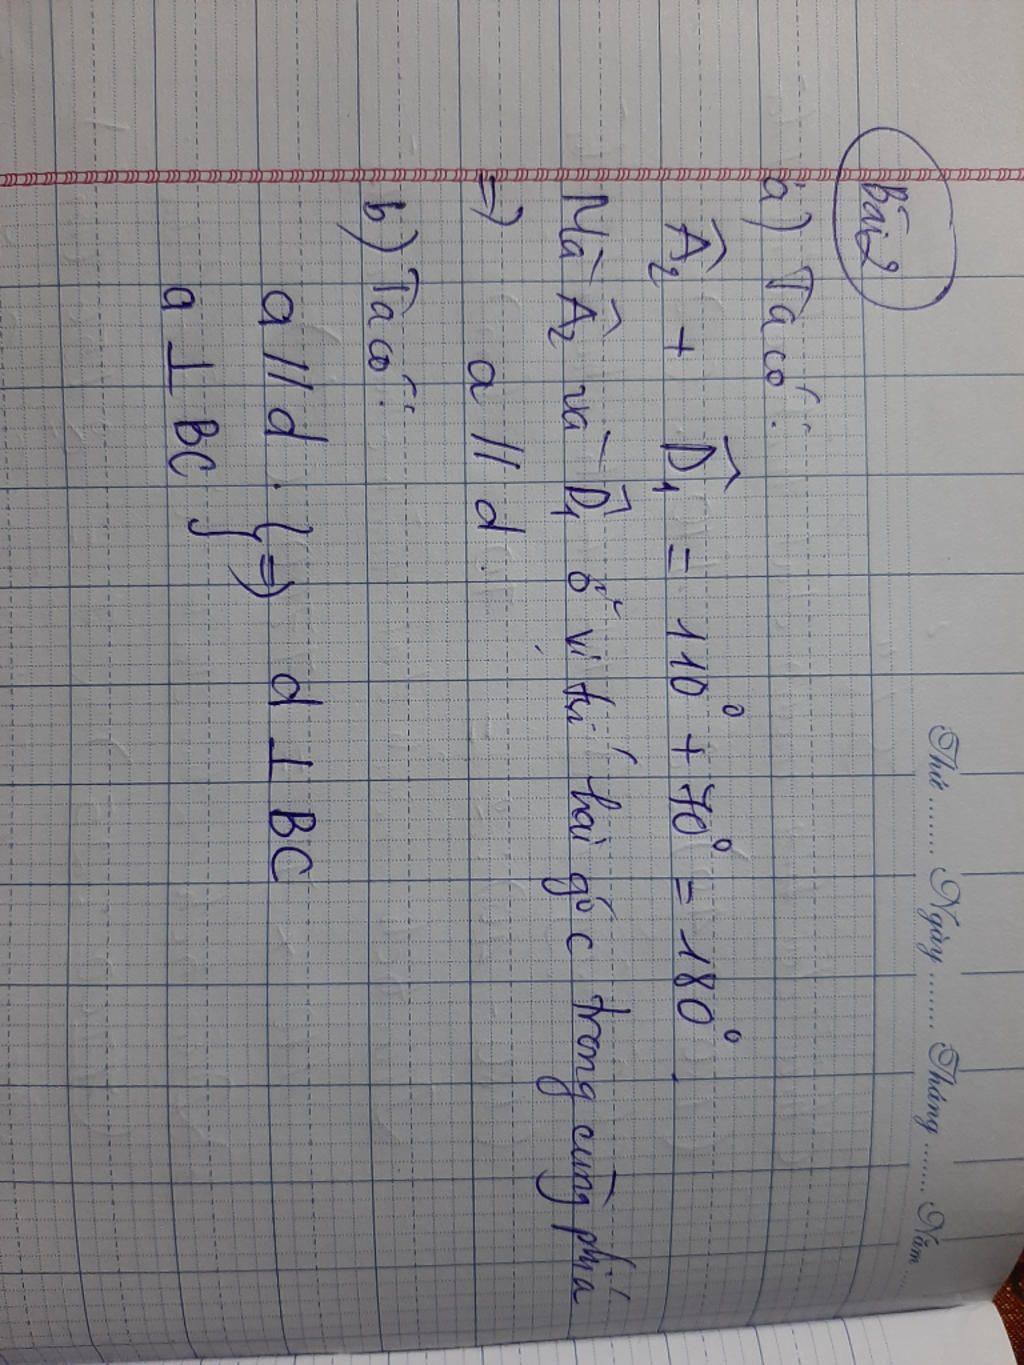 Thứ ........ Ngày ........ Tháng ........ Năm ....
Bài 2
a) Ta có:
Â₂ + D̂₁ = 110⁰ + 70⁰ = 180⁰.
Mà Â₂ và D̂₁ ở vị trí hai góc trong cùng phía
=> a // d.
b) Ta có:
a // d. } => d ⊥ BC
a ⊥ BC